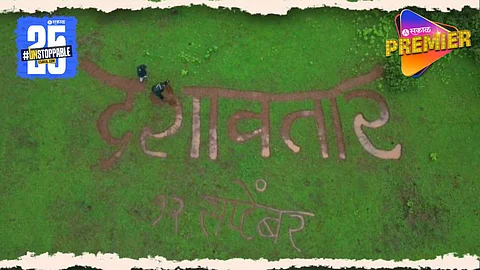 सकाळ
25
#UNSTOPPABLE
सकाळ
PREMIER
दशावतार
१२ सप्टेंबर